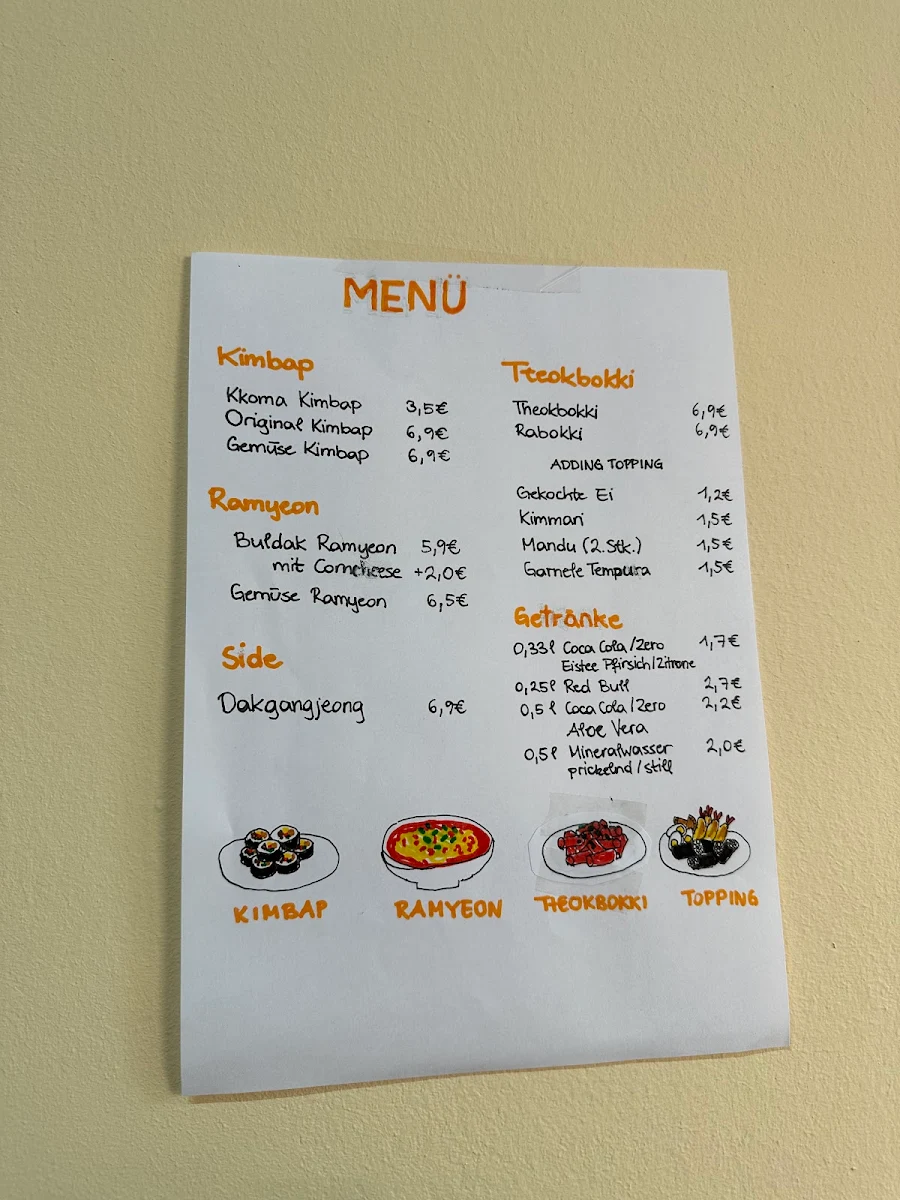 MENÜ
Kimbap
Kkoma Kimbap 3,5€
Original Kimbap 6,9€
Gemüse Kimbap 6,9€
Ramyeon
Buldak Ramyeon 5,9€
mit Corncheese +2,0€
Gemüse Ramyeon 6,5€
Side
Dakgangjeong 6,9€
Tteokbokki
Tteokbokki 6,9€
Rabokki 6,9€
ADDING TOPPING
Gekochte Ei 1,2€
Kimmari 1,5€
Mandu (2.Stk.) 1,5€
Garnele Tempura 1,5€
Getränke
0,33l Coca Cola/Zero 1,7€
Eistee Pfirsich/Zitrone
0,25l Red Bull 2,7€
0,5l Coca Cola/Zero 2,2€
Aloe Vera
0,5l Mineralwasser 2,0€
prickelnd/still
KIMBAP RAMYEON TTEOKBOKKI TOPPING